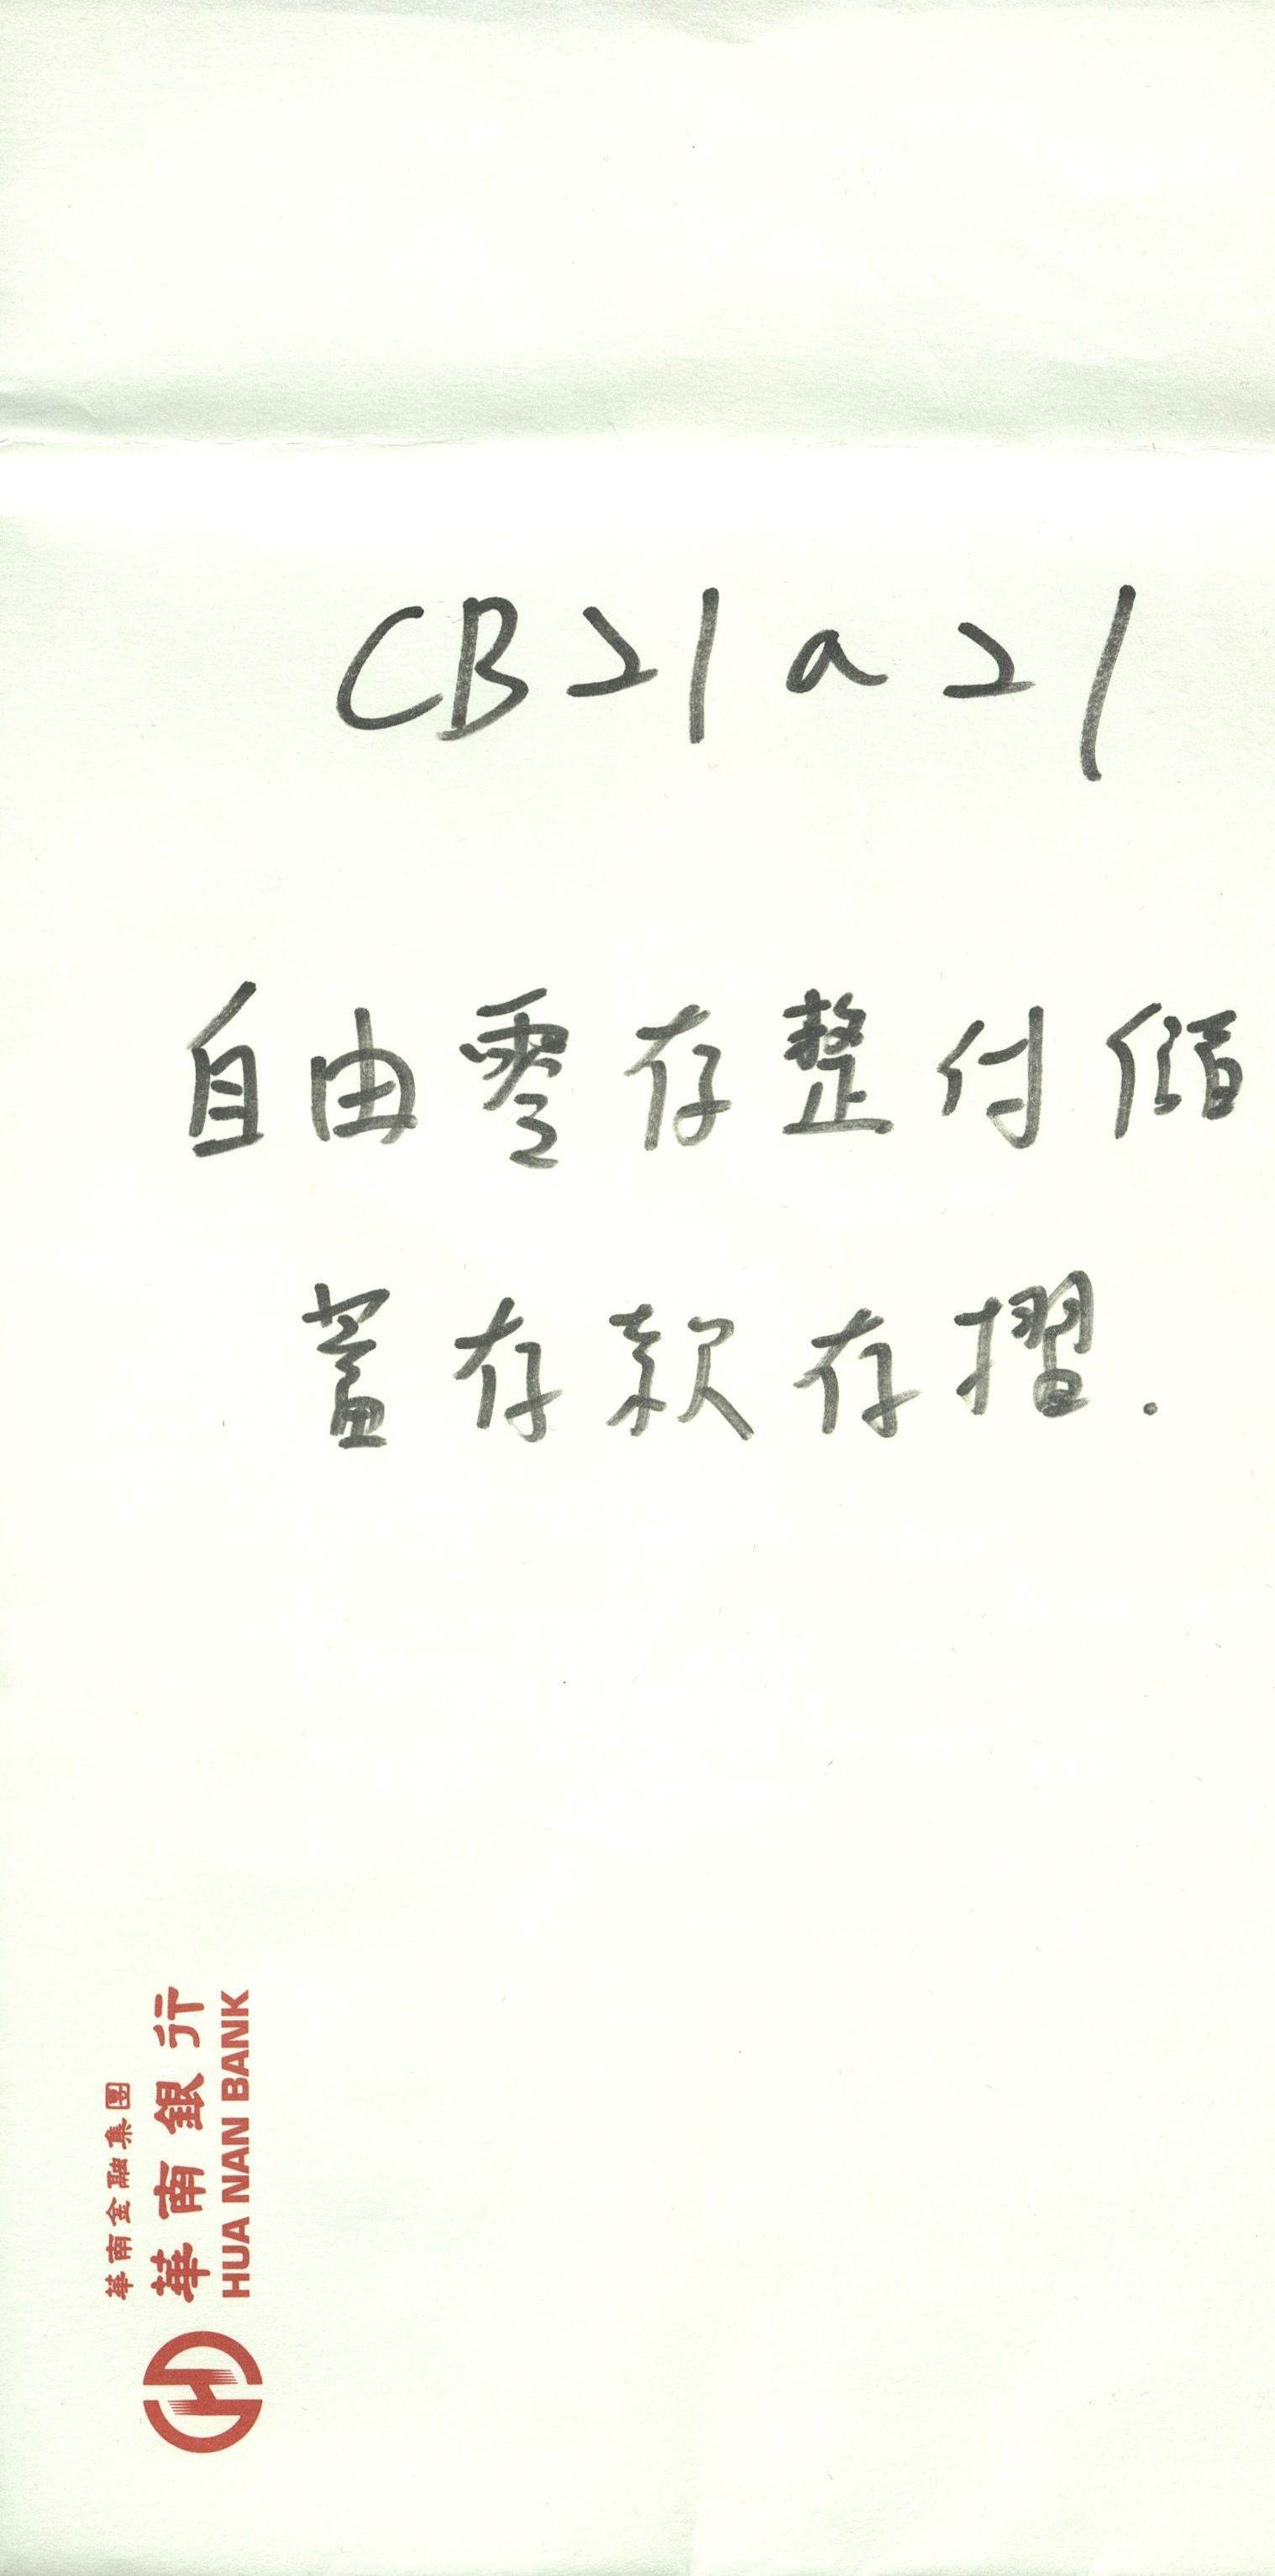 CB21a21
自由零存整付儲
蓄存款存摺.
華南金融集團
華南銀行
HUA NAN BANK